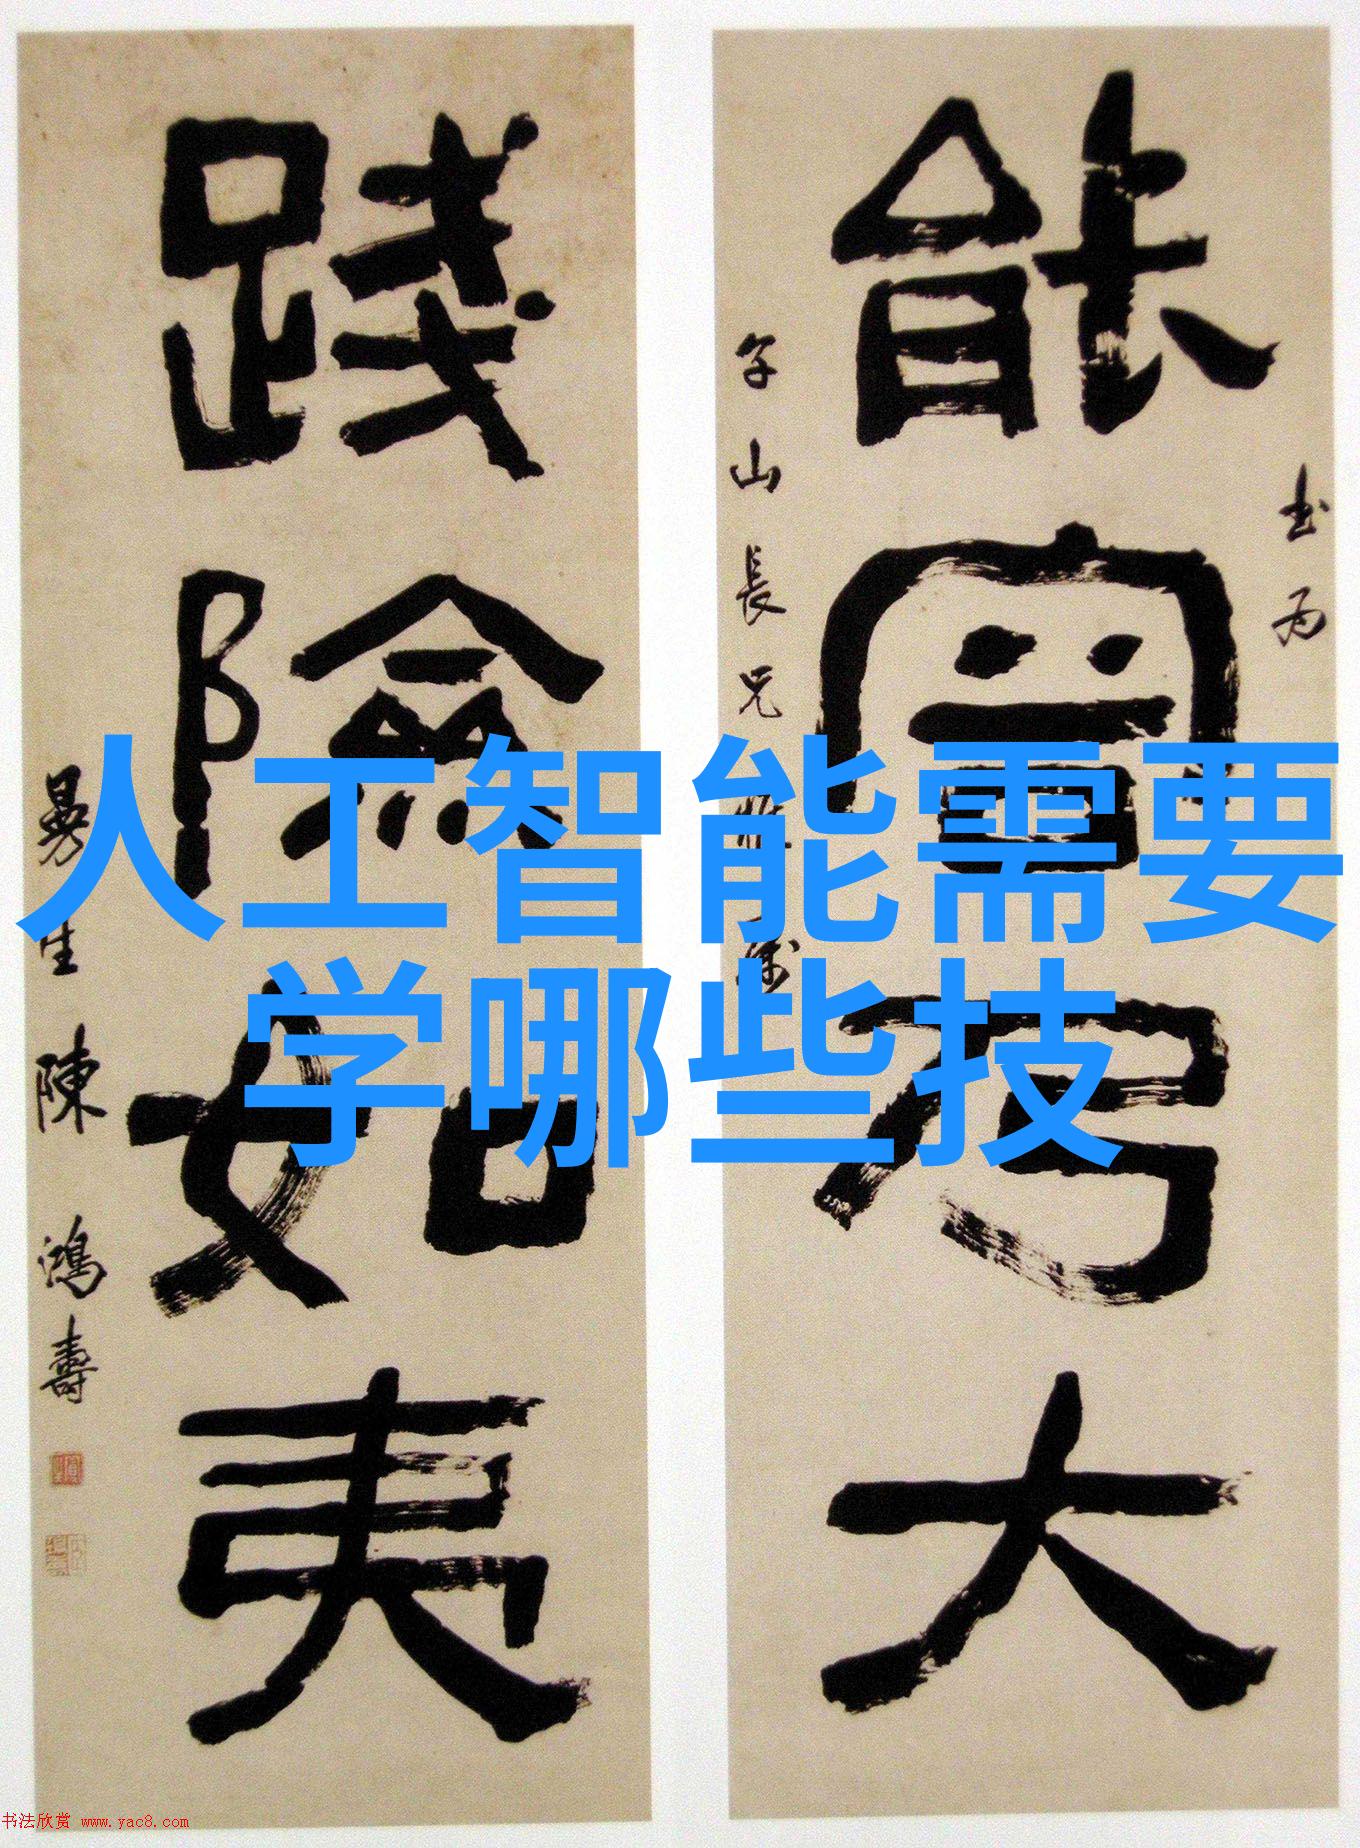 人工智能需要
学哪些技
能大
山長兄
踐險如夷
曼生陳鴻壽
书法欣赏 www.yac8.com